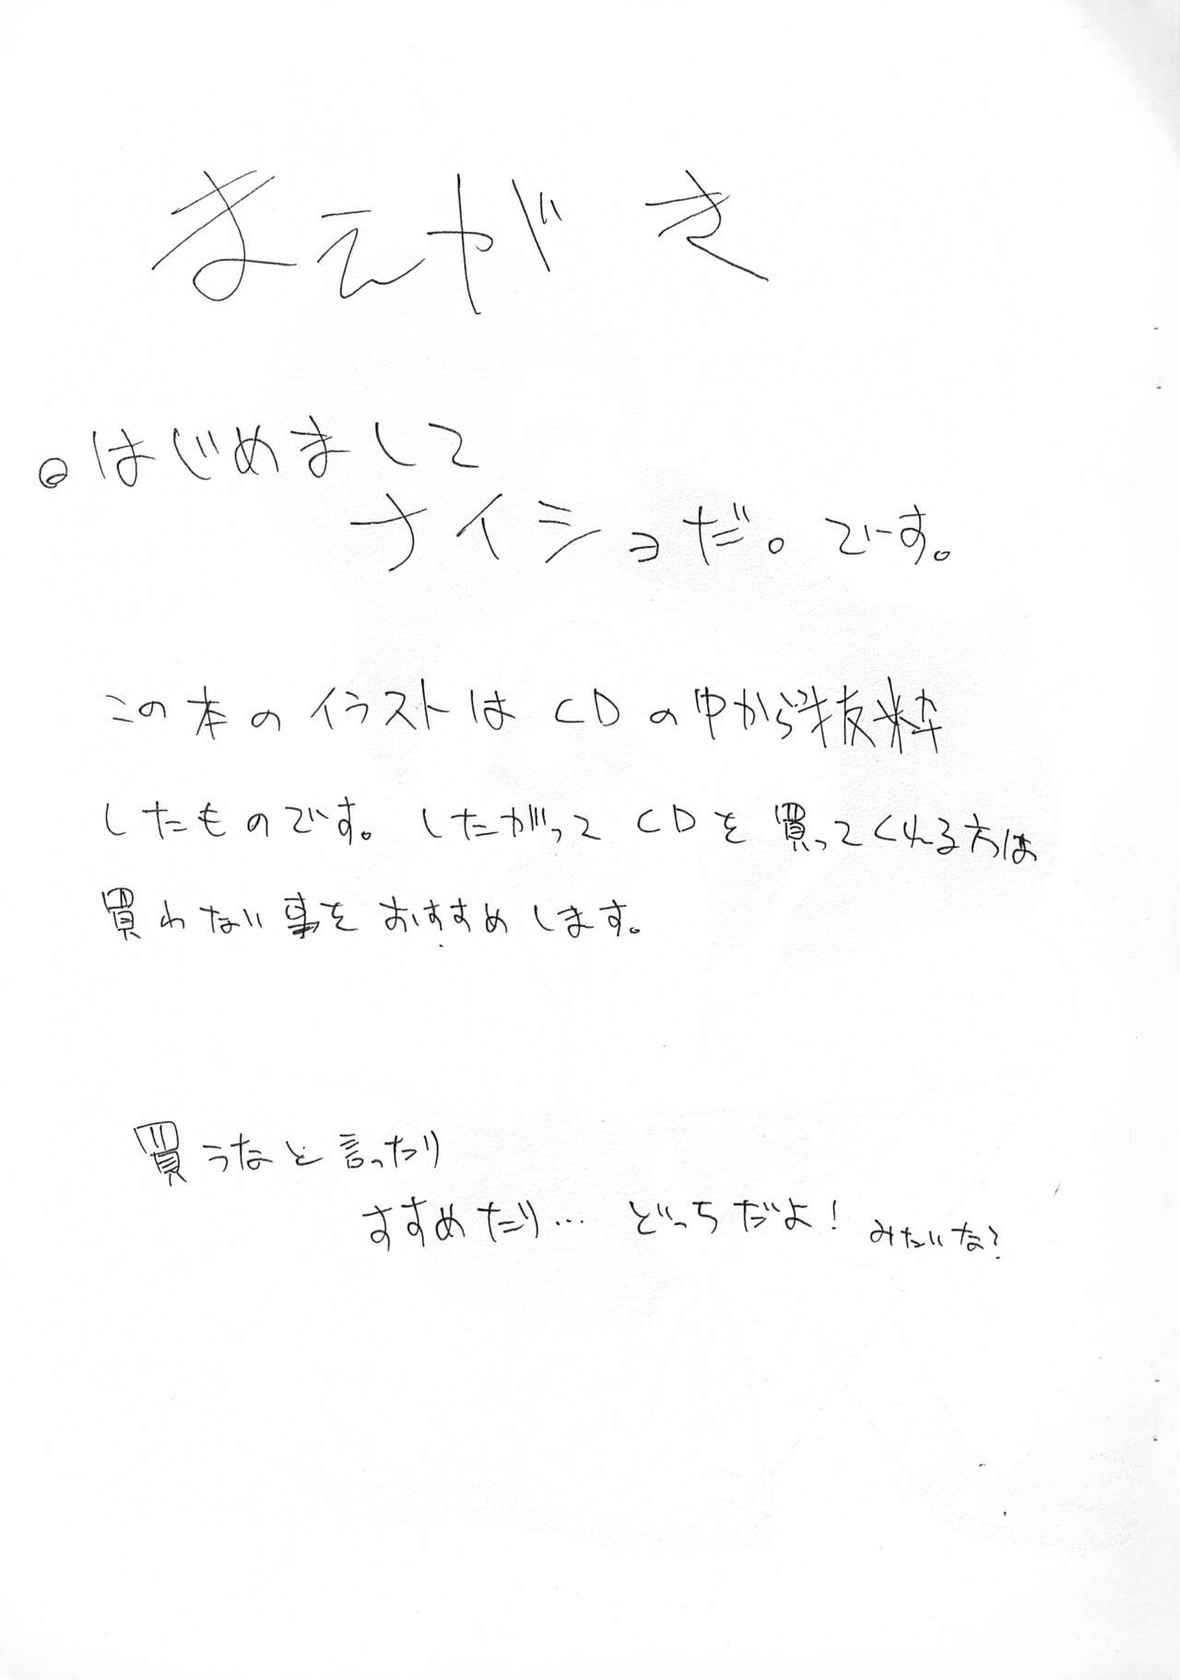 まえがき
◎はじめまして
ナイショだ。でーす。
この本のイラストはCDの中から抜粋
したものです。したがってCDを買ってくれる方は
買わない事をおすすめします。
買うなと言ったり
すすめたり… どっちだよ! みたいな?